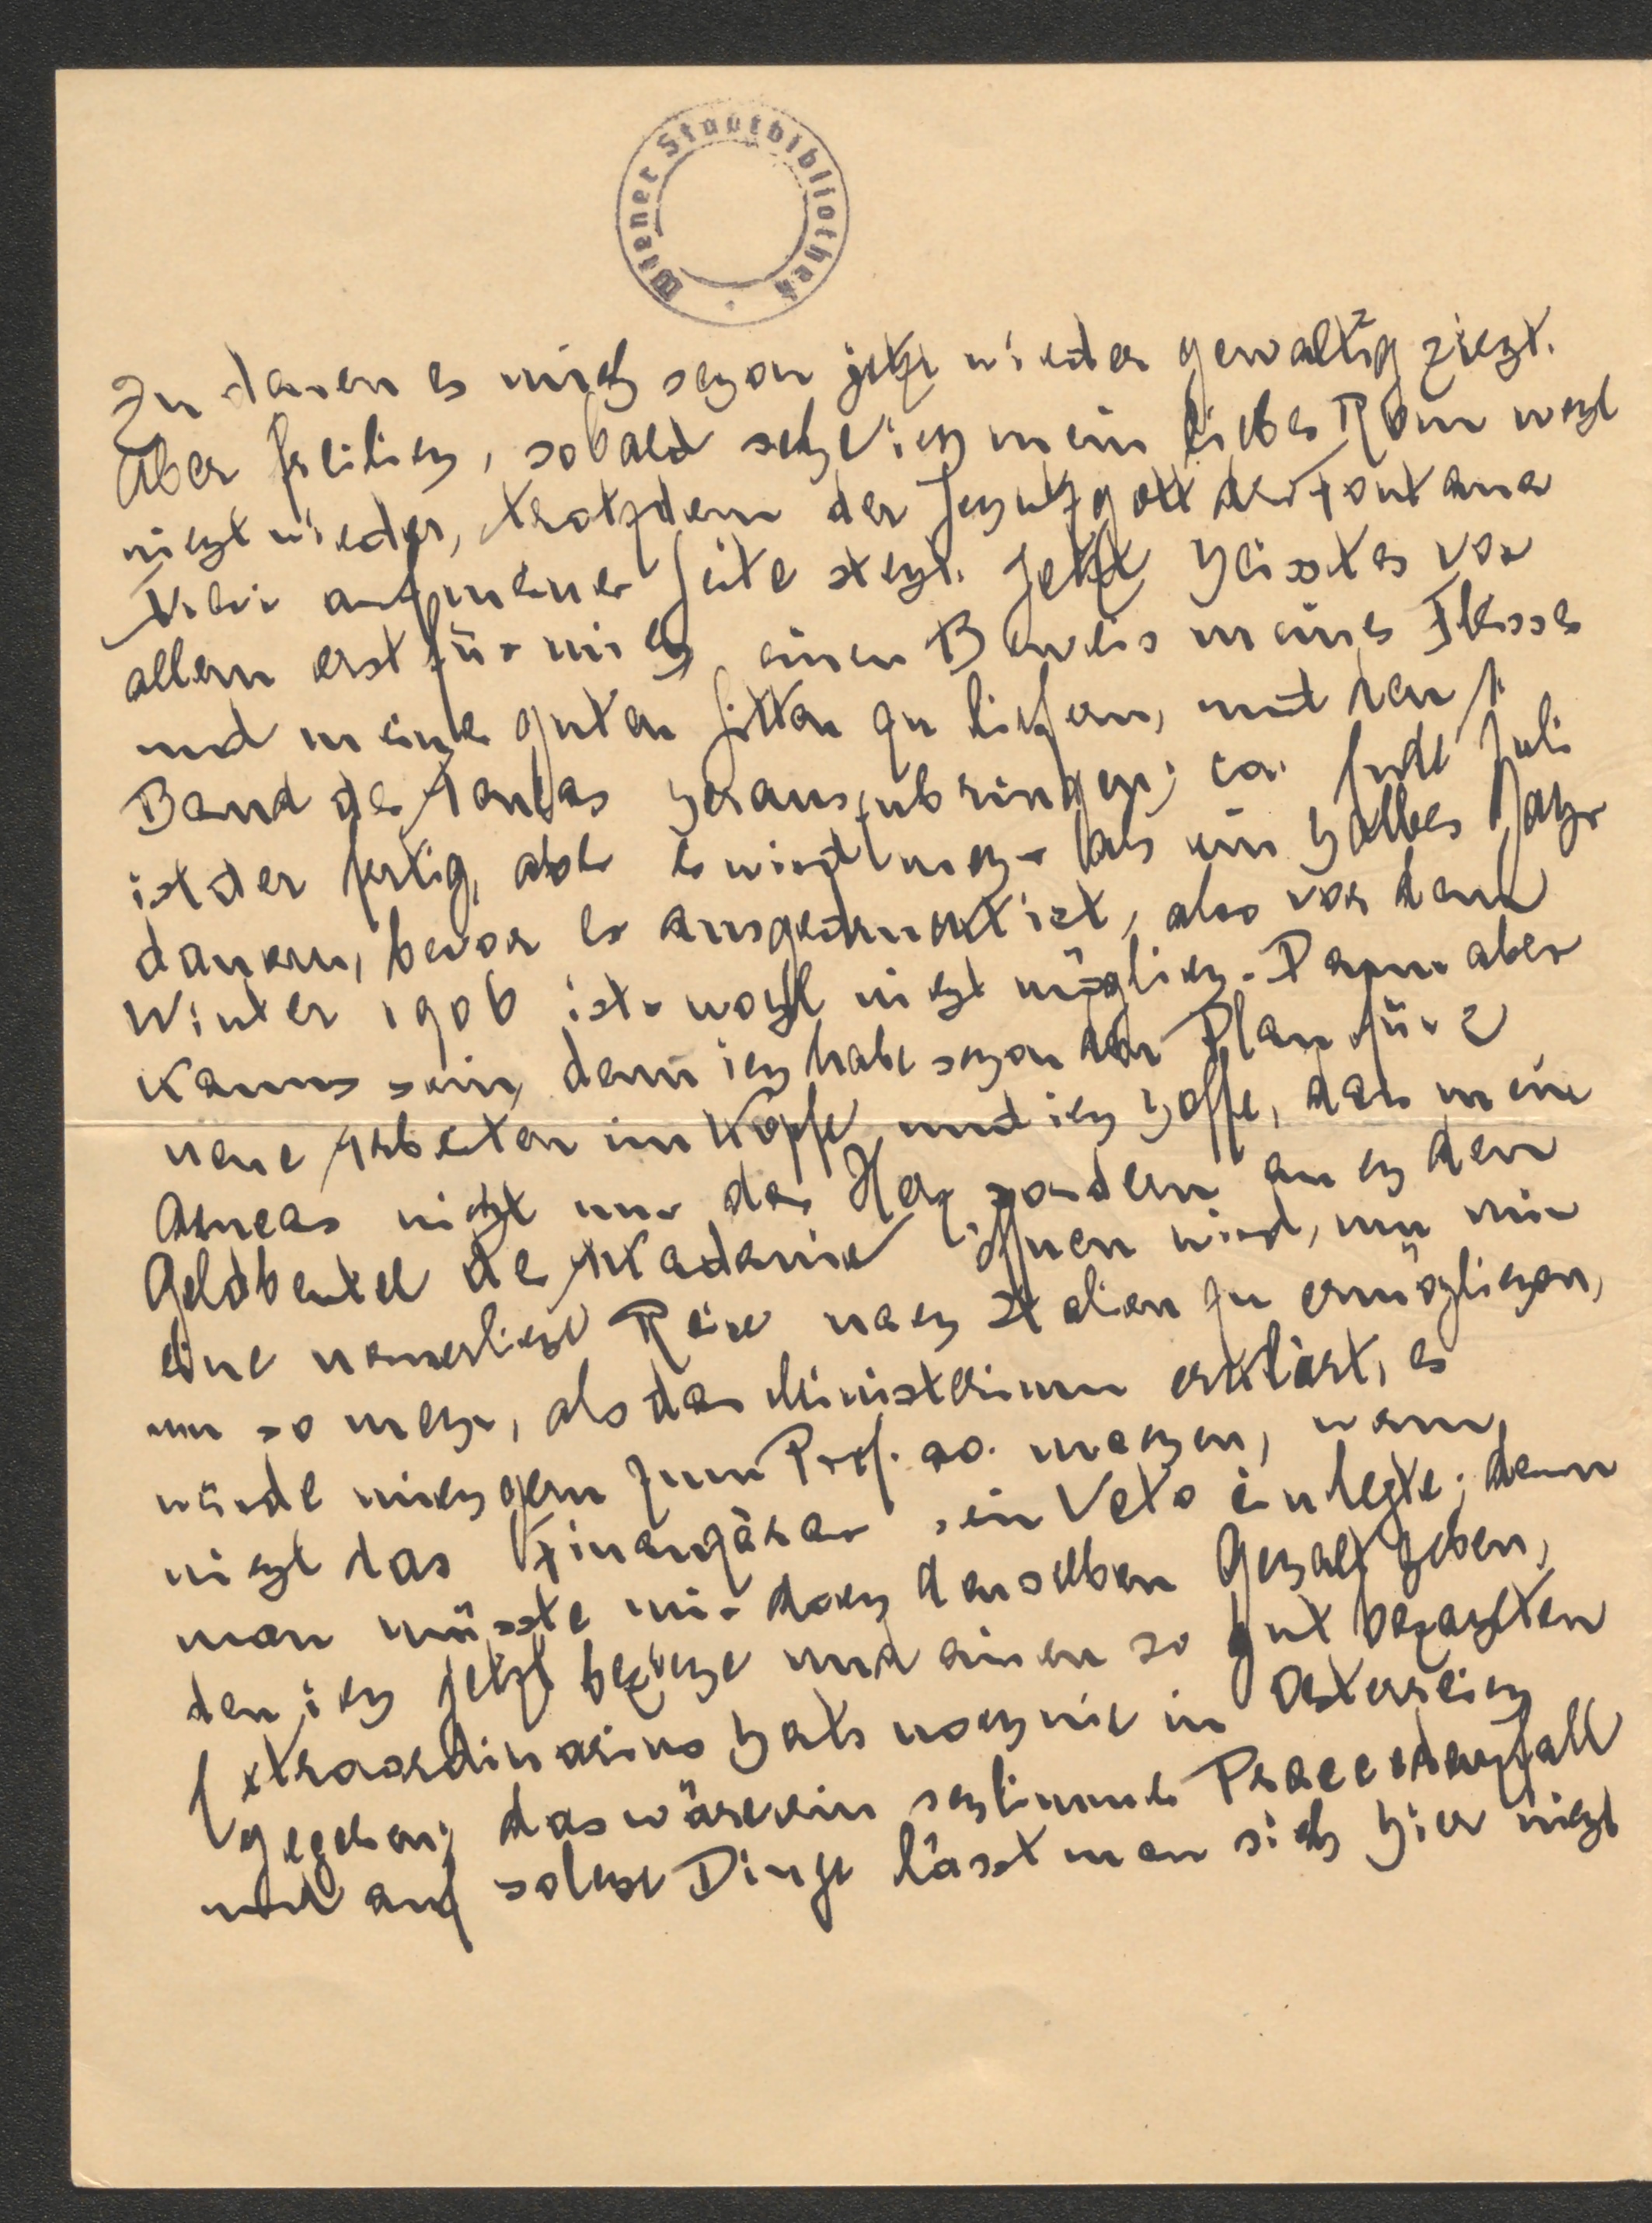 Wiener Stadtbibliothek
zu denen es mich schon jetzt wieder gewaltig zieht.
Aber freilich, sobald sehe ich mein liebes Rom wohl
nicht wieder, trotzdem der Schutzgott der Fontana
Trevi auf meiner Seite steht. Jetzt heisst es vor
allem erst für mich einen Beweis meines Fleisses
und meiner guten Sitten zu liefern, mit den 1.
Band des Aeneas herauszubringen; ca. Ende Juli
ist der fertig, aber es wird mehr als ein halbes Jahr
dauern, bevor er ausgedruckt ist, also vor dem
Winter 1906 ists wohl nicht möglich. Dann aber
kanns sein, denn ich habe schon den Plan für 2
neue Arbeiten im Kopfe und ich hoffe, dass mein
Aeneas nicht nur das Herz sondern auch den
Geldbeutel der Akademie öffnen wird, um mir
eine neuerliche Reise nach Italien zu ermöglichen,
um so mehr, als das Ministerium erklärt, es
würde mich gern zum Prof. ao. machen, wenn
nicht das Finanzärar sein Veto einlegte; denn
man müsste mir doch denselben Gehalt geben,
den ich jetzt beziehe und einen so gut bezahlten
Extraordinarius hats noch nie in Oesterreich
gegeben; das wäre ein schlimmer Praecedenzfall
und auf solche Dinge lässt man sich hier nicht